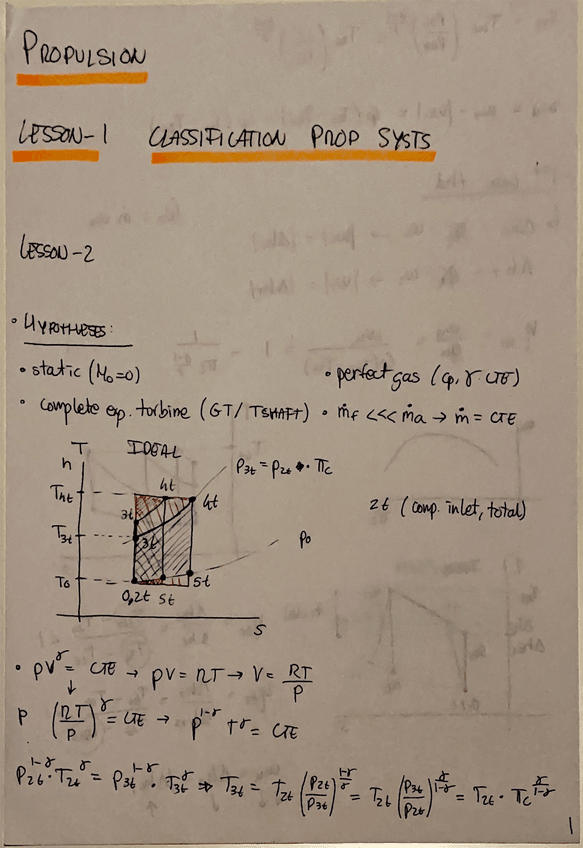 PROPULSION
LESSON-1 CLASSIFICATION PROP SYSTS
LESSON-2
• HYPOTHESES:
• static (M₀=0) • perfect gas (cp, γ CTE)
• complete exp. turbine (GT/TSHAFT) • ṁf <<< ṁa → ṁ = CTE
T IDEAL
h
P3t = P2t · πc
T4t 4t 4t
3t 2t (comp. inlet, total)
T3t 3t P0
T0 5t
0,2t 5t
S
• pV^γ = CTE → pV = nRT → V = RT/P
↓
P (RT/P)^γ = CTE → P^(1-γ) T^γ = CTE
P2t^(1-γ) · T2t^γ = P3t^(1-γ) · T3t^γ ⇒ T3t = T2t (P2t/P3t)^((1-γ)/γ) = T2t (P3t/P2t)^(γ/(1-γ)) = T2t · πc^(γ/(1-γ))
1